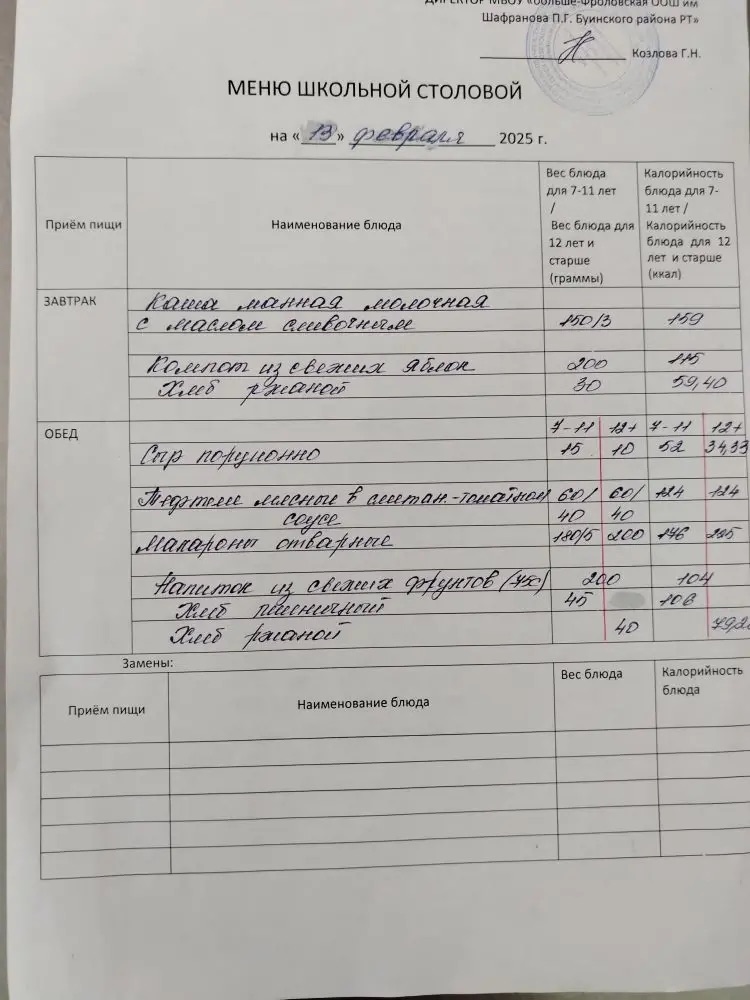 ДИРЕКТОР МБОУ «Больше-Фроловская ООШ им
Шафранова П.Г. Буинского района РТ»
Козлова Г.Н.
МЕНЮ ШКОЛЬНОЙ СТОЛОВОЙ
на «13» февраля 2025 г.
Приём пищи
Наименование блюда
Вес блюда для 7-11 лет / Вес блюда для 12 лет и старше (граммы)
Калорийность блюда для 7-11 лет / Калорийность блюда для 12 лет и старше (ккал)
ЗАВТРАК
Каша манная молочная
с маслом сливочным 150/3 159
Компот из свежих яблок 200 115
Хлеб ржаной 30 59,40
ОБЕД
7-11 12+ 7-11 12+
Сыр порционно 15 10 52 34,33
Тефтели мясные в сметан.-томатном 60/ 60/ 124 124
соусе 40 40
Макароны отварные 180/5 200 176
Напиток из свежих фруктов (75С) 200 104
Хлеб пшеничный 45 106
Хлеб ржаной 40
Замены:
Приём пищи
Наименование блюда
Вес блюда
Калорийность блюда